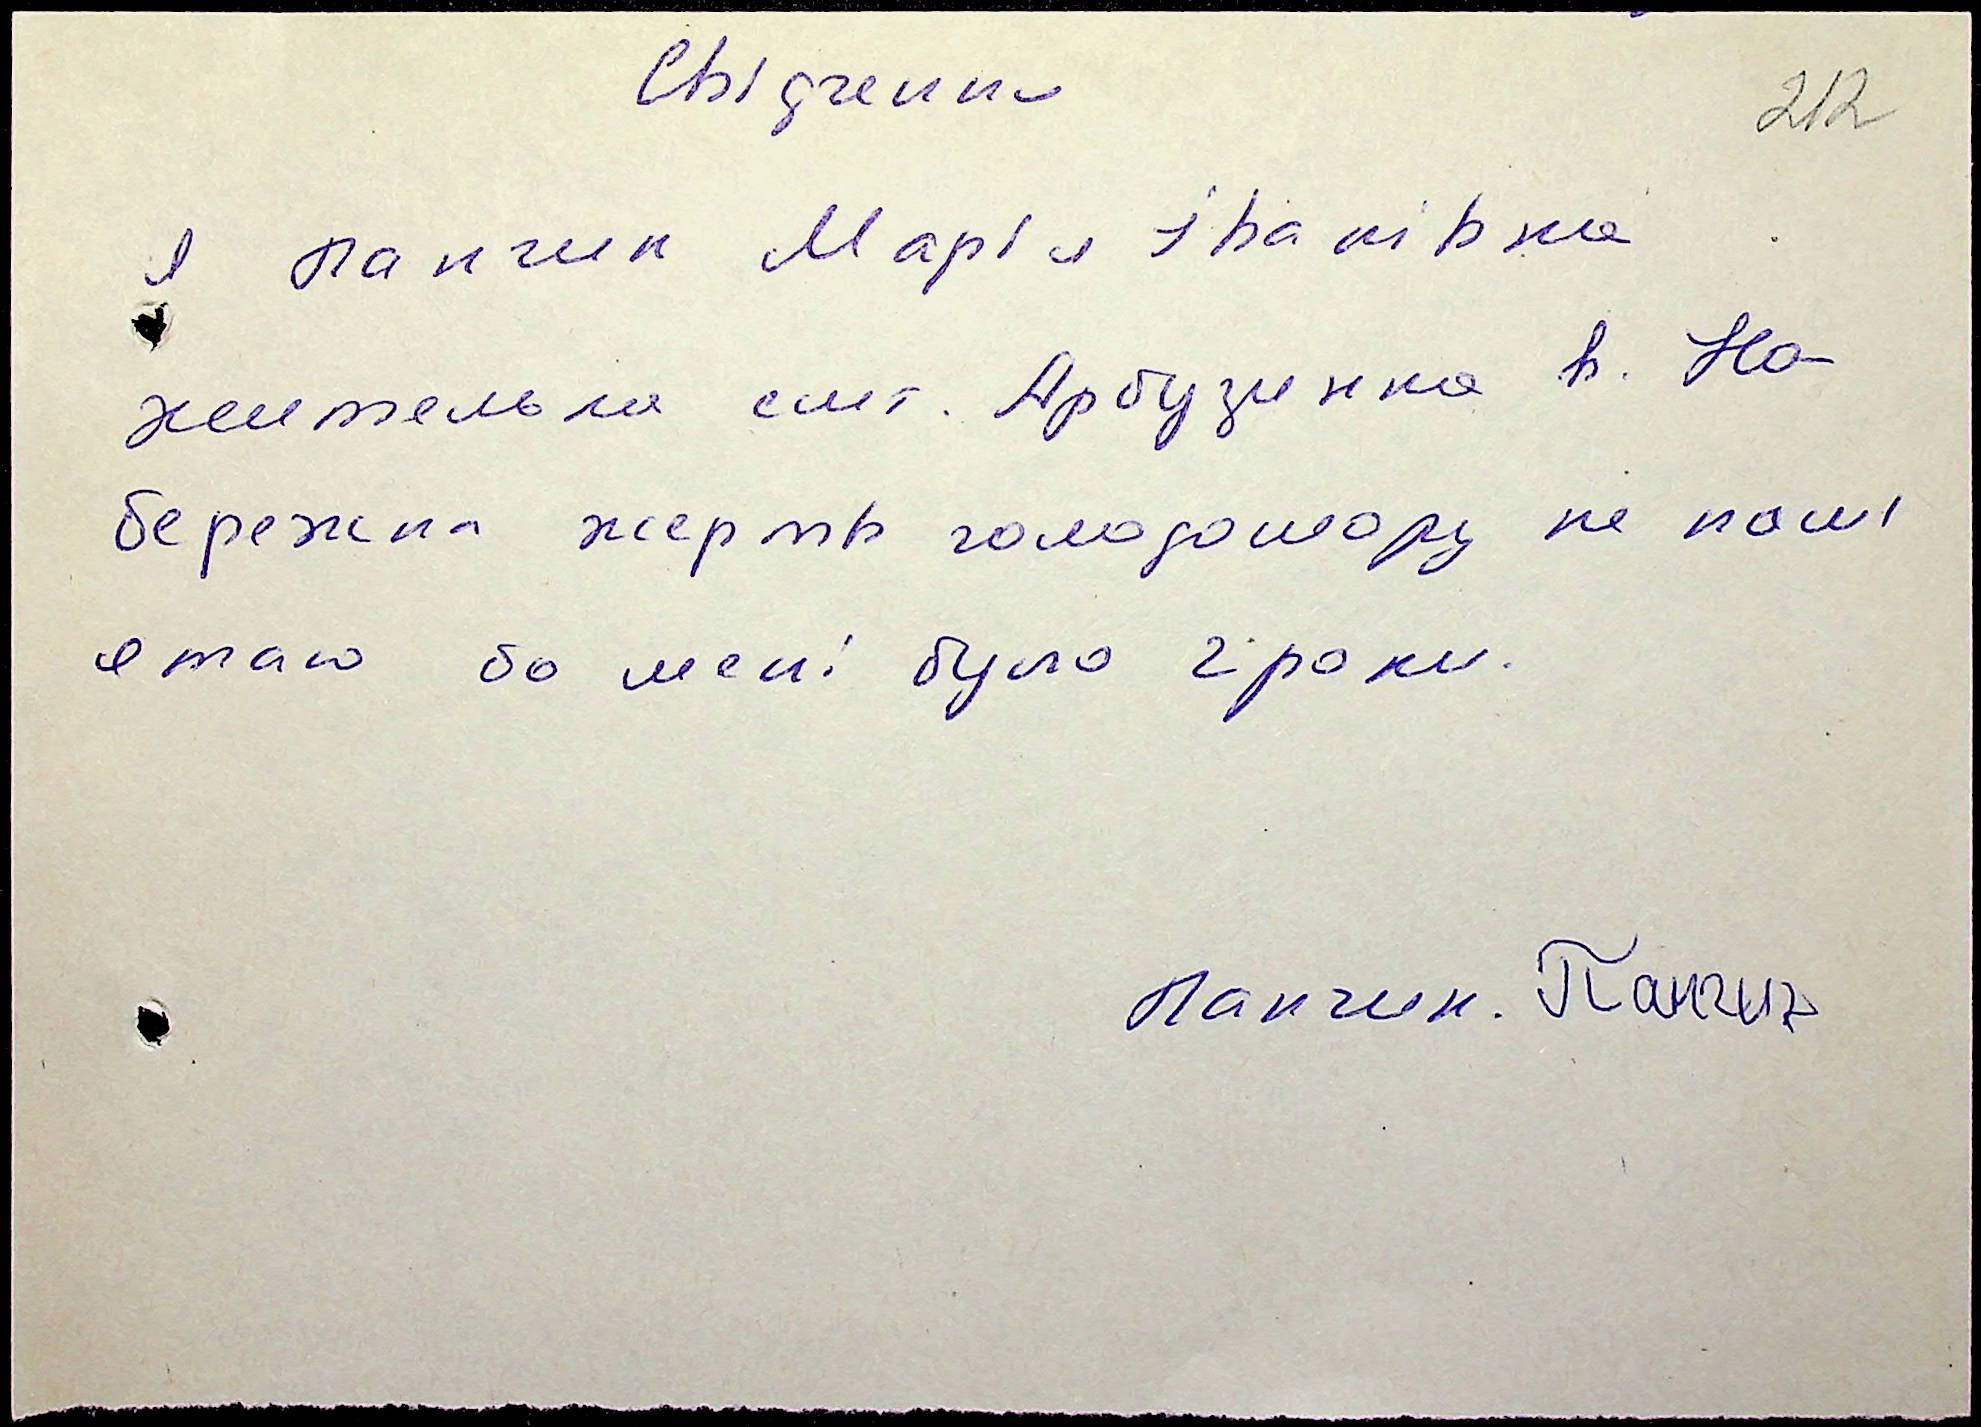 Свідчення
212
Я Панчик Марія Іванівна
жителька смт. Арбузинка в. На-
бережна жертв голодомору не памі
ятаю бо мені було 2 роки.
Панчик. Панчик